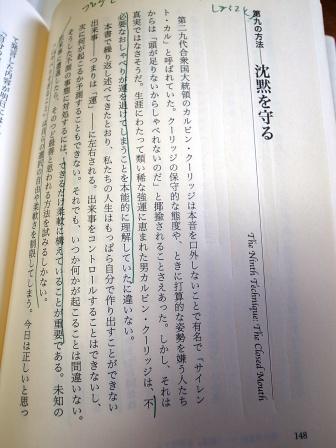 第九の方法
沈黙を守る
The Ninth Technique: The Closed Mouth
第二九代合衆国大統領のカルビン・クーリッジは本音を口外しないことで有名で「サイレン
ト・カル」と呼ばれていた。クーリッジの保守的な態度や、ときに打算的な姿勢を嫌う人たち
からは「頭が足りないからしゃべれないのだ」と揶揄されることさえあった。しかし、それは
真実ではなさそうだ。生涯にわたって類い稀な強運に恵まれた男カルビン・クーリッジは、不
必要なおしゃべりが運を遠ざけてしまうことを本能的に理解していたに違いない。
本書で繰り返し述べてきたとおり、私たちの人生はもっぱら自分で作り出すことができない
出来事――つまりは「運」――に左右される。出来事をコントロールすることはできないし、
次に何が起こるか予測することもできない。それでも、いつか何かが起こることは間違いない。
そうした予測の事態に対処するには、できるだけ柔軟に構えていることが重要である。未知の
そのつど最善と思われる方法を試みるしかない。
自由や柔軟さを制限してしまう。今日は正しいと思っ
て発言した内容が明日には
148